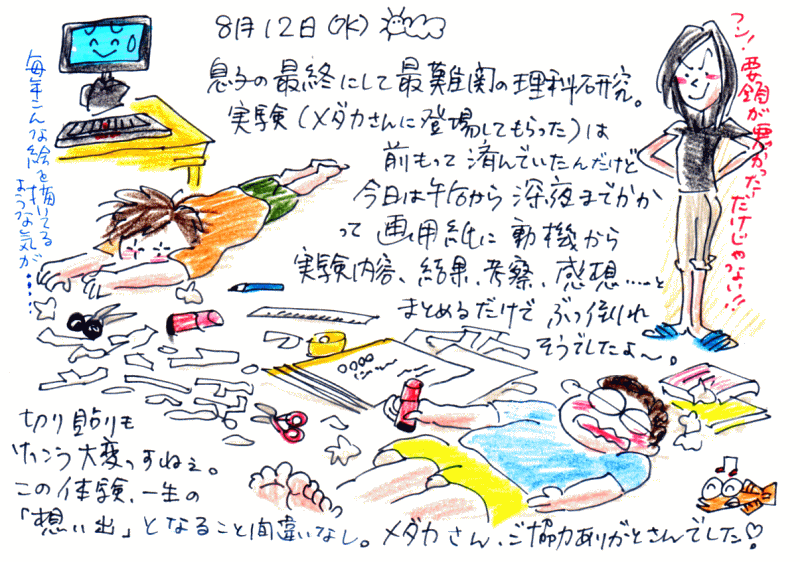 8月12日(水)
息子の最終にして最難関の理科研究。
実験(メダカさんに登場してもらった)は
前もって済んでいたんだけど
今日は午后から深夜までかか
って画用紙に動機から
実験内容、結果、考察、感想……と
まとめるだけでぶっ倒れ
そうでしたよ～。
毎年こんな絵を描いてる
ような気が……
フン!要領が悪かっただけじゃない!!
切り貼りも
けっこう大変っすねぇ。
この体験、一生の
「想い出」となること間違いなし。メダカさん、ご協力ありがとさんでした♡